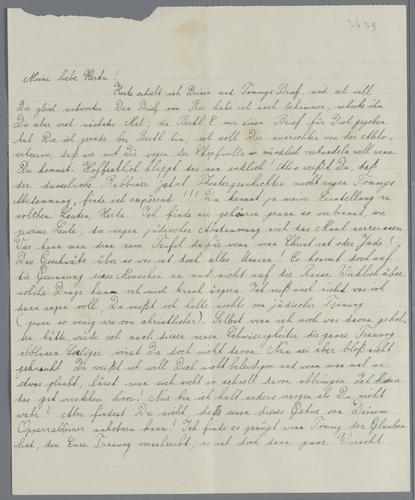 3639
Meine liebe Herta!
Heute erhielt ich Deinen und Tommys Brief, und ich will
Dir gleich antworten. Den Brief von habe ich noch bekommen, schicke ihn
Dir aber erst nächstes Mal, da Bertl E. mir einen Brief für Dich gegeben
hat. Da ich gerade bei Bertl bin, ich soll Dir ausrichten von der
dass sie mit Dir wegen der mündlich verhandeln will wenn
Du kommst. Hoffentlich klappt das nun endlich! Also weißt Du, daß
der Rabbiner jetzt macht wegen Tommys
Abstammung, finde ich empörend!!! Du kennst ja meine Einstellung zu
solchen Leuten, Herta. Ich finde sie gehören genau so verbannt, wie
gewisse Leute, die wegen jüdischer Abstammung sich das Maul zerreissen.
Was kann man denn zum Teufel dafür wenn man Christ ist oder Jude!
Das Geschwätz über so was ist doch alles Unsinn! Es kommt doch auf
die Gesinnung eines Menschen an und nicht auf die Rasse. Wirklich über
solche Dinge kann ich mich krank ärgern. Ich weiß auch nicht was ich
dazu sagen soll, Du weißt ich halte nichts von jüdischer Trauung
(genau so wenig wie von christlicher). Selbst wenn ich noch was davon gehal-
ten hätte, würde ich nach diesen neuen Schwierigkeiten die ganze Trauung
ablehnen. wirst Du doch nicht davon. Nun sei aber bloß nicht
gekränkt Du weißt ich will Dich nicht beleidigen und wenn man mal an
etwas glaubt, lässt man sich nicht so schnell davon abbringen. Ich kann
das gut verstehen hoor! Nur bin ich halt anders erzogen als Du, nicht
wahr? Aber findest Du nicht, daß einen dieses Getue von Deinem
Opperrabbiner ankotzen kann! Ich finde es genügt wenn Tommy den Glauben
hat, den Eure Trauung vorschreibt, es ist doch dann ganz